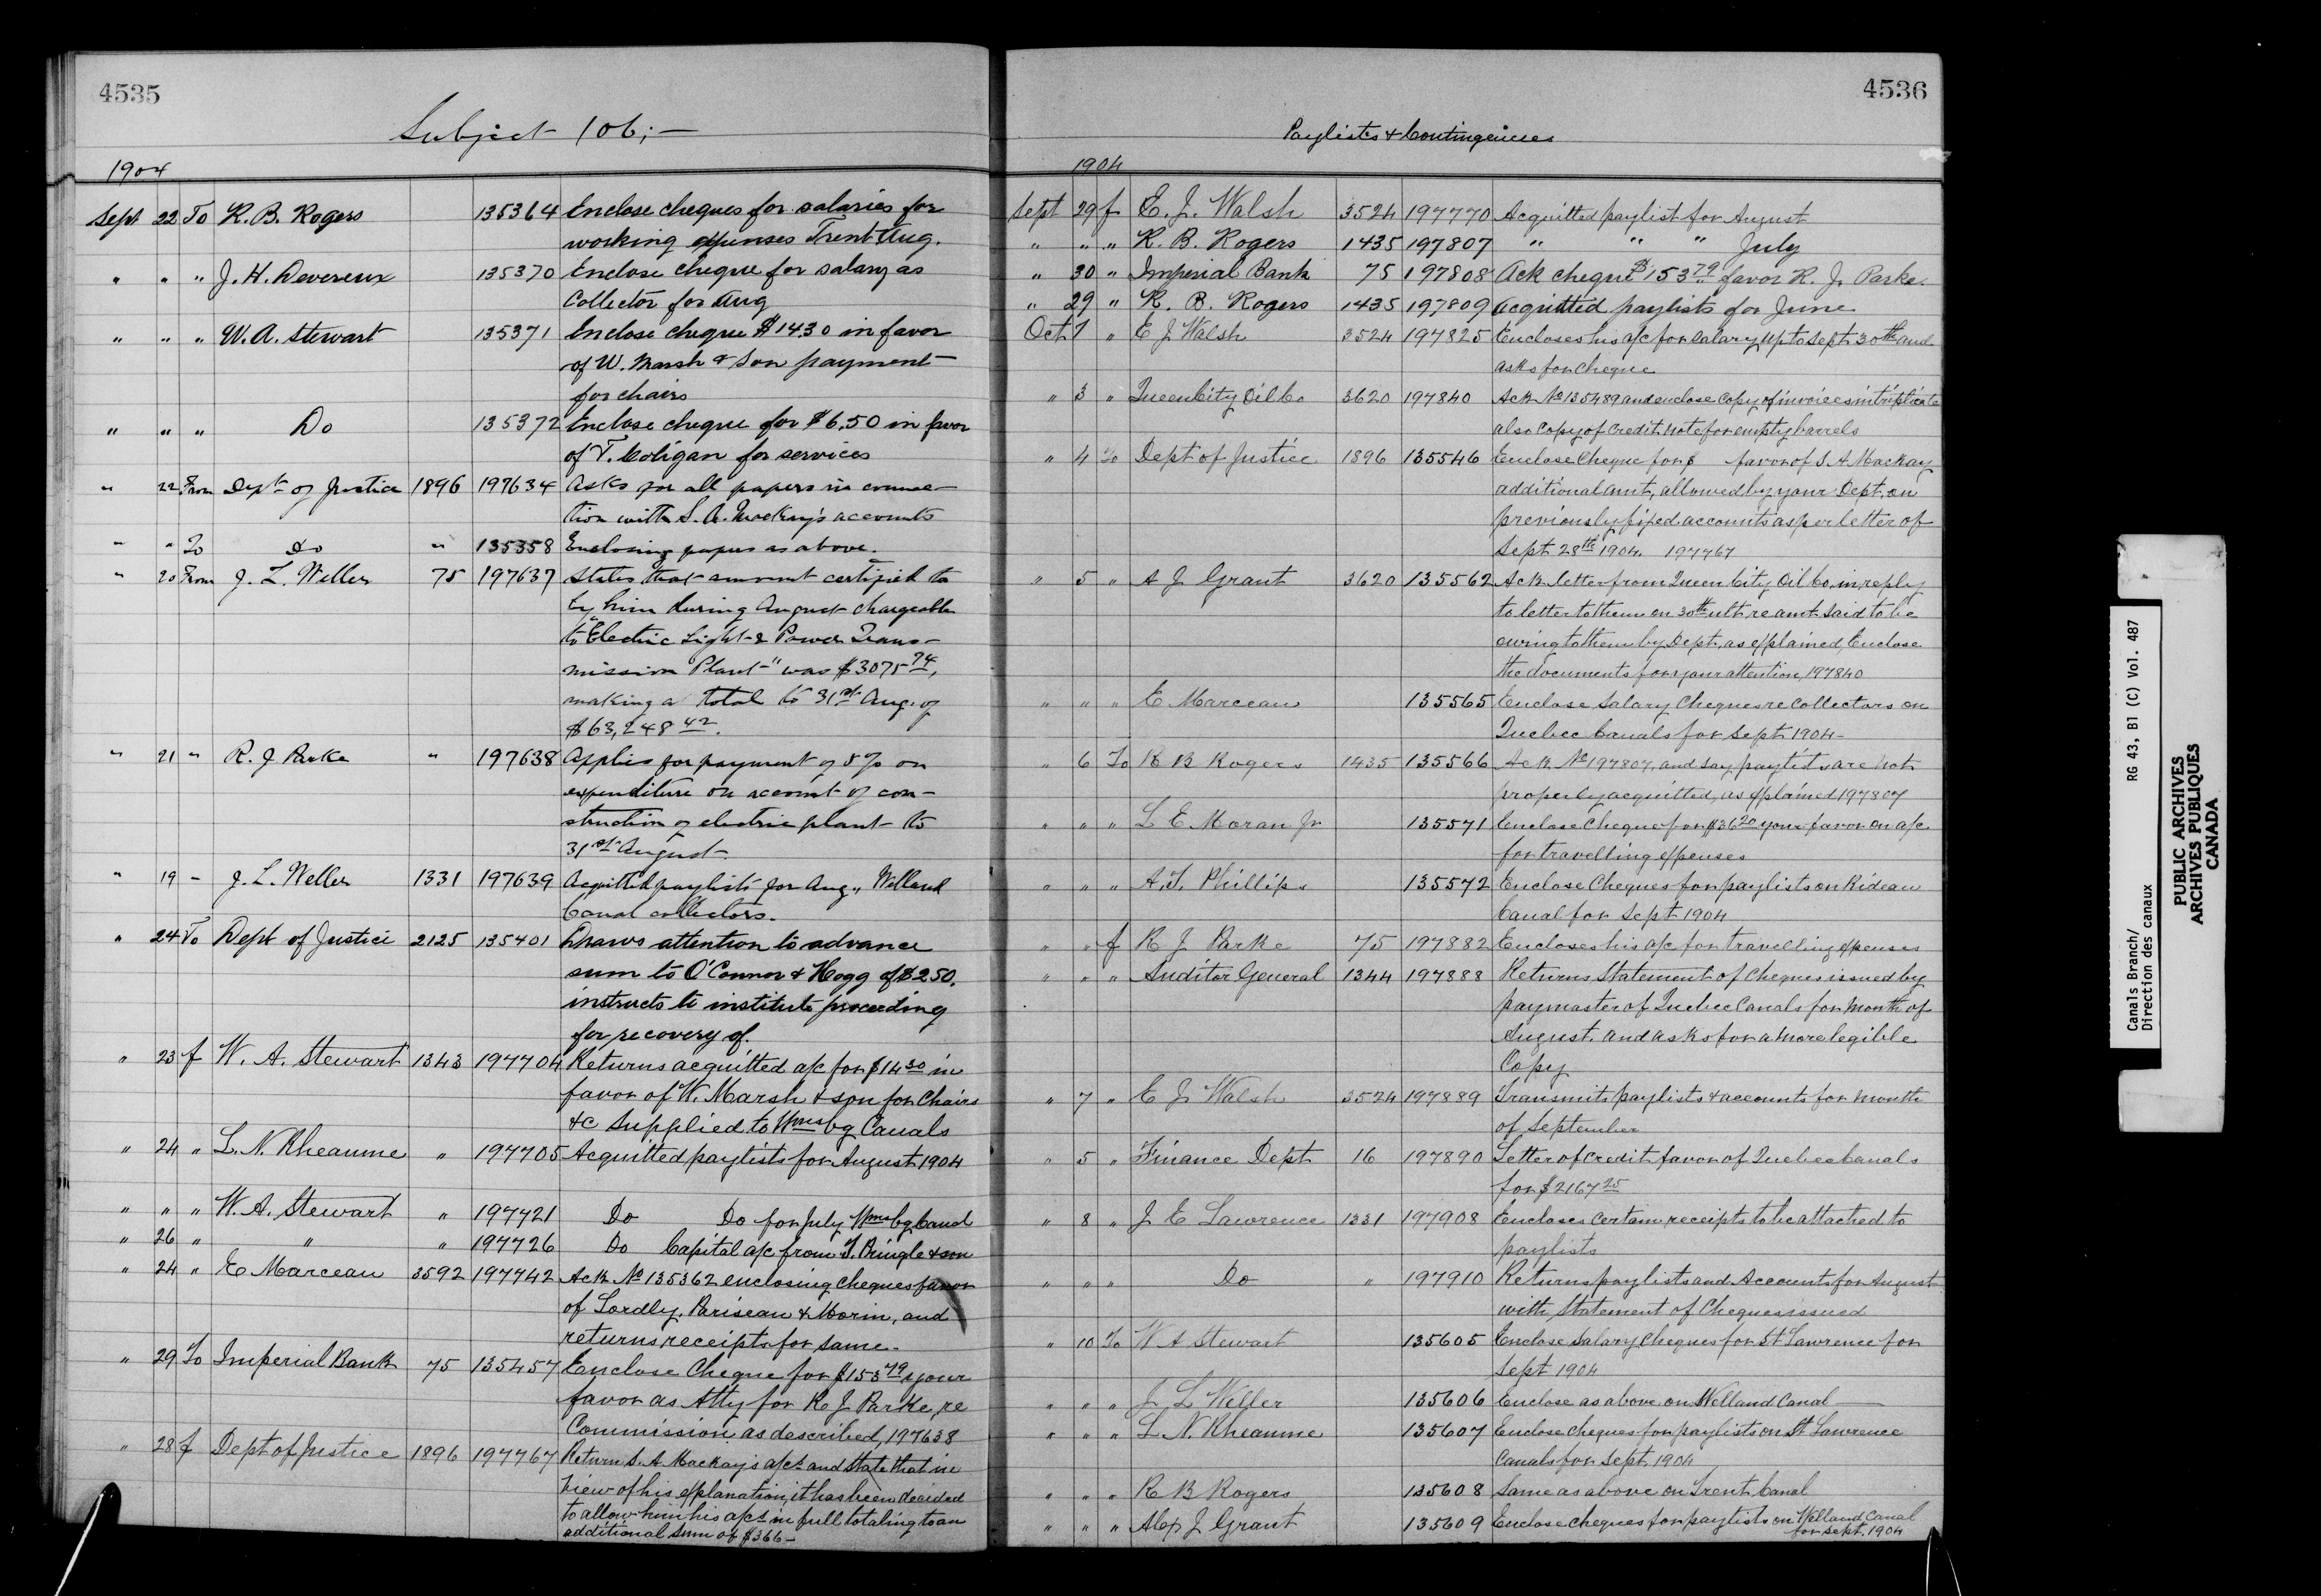 4535
Subject 106;—
1904
Sept 22 To R. B. Rogers 135364 Enclose cheques for salaries for
working expenses Trent Aug.
" " " J. H. Devereux 135370 Enclose cheque for salary as
Collector for Aug
" " " W. A. Stewart 135371 Enclose cheque $1430 in favor
of W. Marsh & Son payment
for chairs
" " " Do 135372 Enclose cheque for $6.50 in favor
of T. Coligan for services
" 22 From Dept of Justice 1896 197634 Asks for all papers in connec-
tion with S. A. Mackay's accounts
" " To Do " 135358 Enclosing papers as above.
" 20 From J. L. Weller 75 197637 States that amount certified to
by him during August chargeable
to "Electric Light & Power Trans-
mission Plant" was $3075 74,
making a total to 31st Aug. of
$63,248 42.
" 21 " R. J. Parke " 197638 Applies for payment of 5% on
expenditure on account of con-
struction of electric plant to
31st August.
" 19 - J. L. Weller 1331 197639 Acquitted paylists for Aug., Welland
Canal collectors.
" 24 To Dept of Justice 2125 135401 Draws attention to advance
sum to O'Connor & Hogg of $250.
instructs to institute proceeding
for recovery of.
" 23 f W. A. Stewart 1343 197704 Returns acquitted a/c for $14 30 in
favor of W. Marsh & son for Chairs
&c supplied to Wmsbg Canals
" 24 " L. N. Rheaume " 197705 Acquitted paylists for August 1904
" " " W. A. Stewart " 197721 Do Do for July Wmsbg Canal
" 26 " " " 197726 Do Capital a/c from J. Pringle & son
" 24 " E Marceau 3592 197742 Ack No 135362 enclosing cheques favor
of Lordly, Pariseau & Morin, and
returns receipts for same.
" 29 To Imperial Bank 75 135457 Enclose Cheque for $153 79 your
favor as Atty for R J Parke, re
Commission as described, 197638
" 28 f Dept of Justice 1896 197767 Return S. A Mackay's a/cs and state that in
view of his explanation, it has been decided
to allow him his a/cs in full totaling to an
additional sum of $366—
4536
Paylists & Contingencies
1904
Sept 29 f E. J. Walsh 3524 197770 Acquitted paylist for August
" " " R. B. Rogers 1435 197807 " " " July
" 30 " Imperial Bank 75 197808 Ack cheque $153 79 favor R. J. Parke.
" 29 " R. B. Rogers 1435 197809 Acquitted paylists for June
Oct 1 " E J Walsh 3524 197825 Encloses his a/c for salary up to Sept 30th and
asks for cheque
" 3 " Queen City Oil Co 3620 197840 Ack No 135489 and enclose copy of invoices in triplicate
also copy of credit note for empty barrels
" 4 To Dept of Justice 1896 135546 Enclose Cheque for $ favor of S. A Mackay
additional amt, allowed by your Dept, on
previously fixed accounts as per letter of
Sept 28th 1904. 197767
" 5 " A J Grant 3620 135562 Ack letter from Queen City Oil Co, in reply
to letter to them on 30th ult re amt said to be
owing to them by Dept, as explained, Enclose
the documents for your attention, 197840
" " " E Marceau 135565 Enclose Salary Cheques re Collectors on
Quebec Canals for Sept 1904-
" 6 To R B Rogers 1435 135566 Ack No 197807, and say paylists are not
properly acquitted, as explained 197807
" " " L E Moran Jr 135571 Enclose Cheque for $36 20 your favor on a/c
for travelling expenses
" " " A. T. Phillips 135572 Enclose Cheques for paylists on Rideau
Canal for Sept 1904
" " f R J Parke 75 197882 Encloses his a/c for travelling expenses
" " " Auditor General 1344 197888 Returns Statement of Cheques issued by
paymaster of Quebec Canals for month of
August. and asks for a more legible
Copy
" 7 " E J Walsh 3524 197889 Transmits paylists & accounts for month
of September
" 5 " Finance Dept 16 197890 Letter of credit favor of Quebec Canals
for $2167 25
" 8 " J E Lawrence 1331 197908 Encloses certain receipts to be attached to
paylists
" " " Do " 197910 Returns paylists and Accounts for August
with statement of Cheques issued
" 10 To W A Stewart 135605 Enclose Salary cheques for St Lawrence for
Sept 1904
" " " J L Weller 135606 Enclose as above on Welland Canal —
" " " L N. Rheaume 135607 Enclose cheques for paylists on St Lawrence
Canals for Sept 1904
" " " R B Rogers 135608 Same as above on Trent Canal
" " " Alex J Grant 135609 Enclose cheques for paylists on Welland Canal
for Sept. 1904
Canals Branch/ RG 43, B1 (C) Vol. 487
Direction des canaux
PUBLIC ARCHIVES
ARCHIVES PUBLIQUES
CANADA